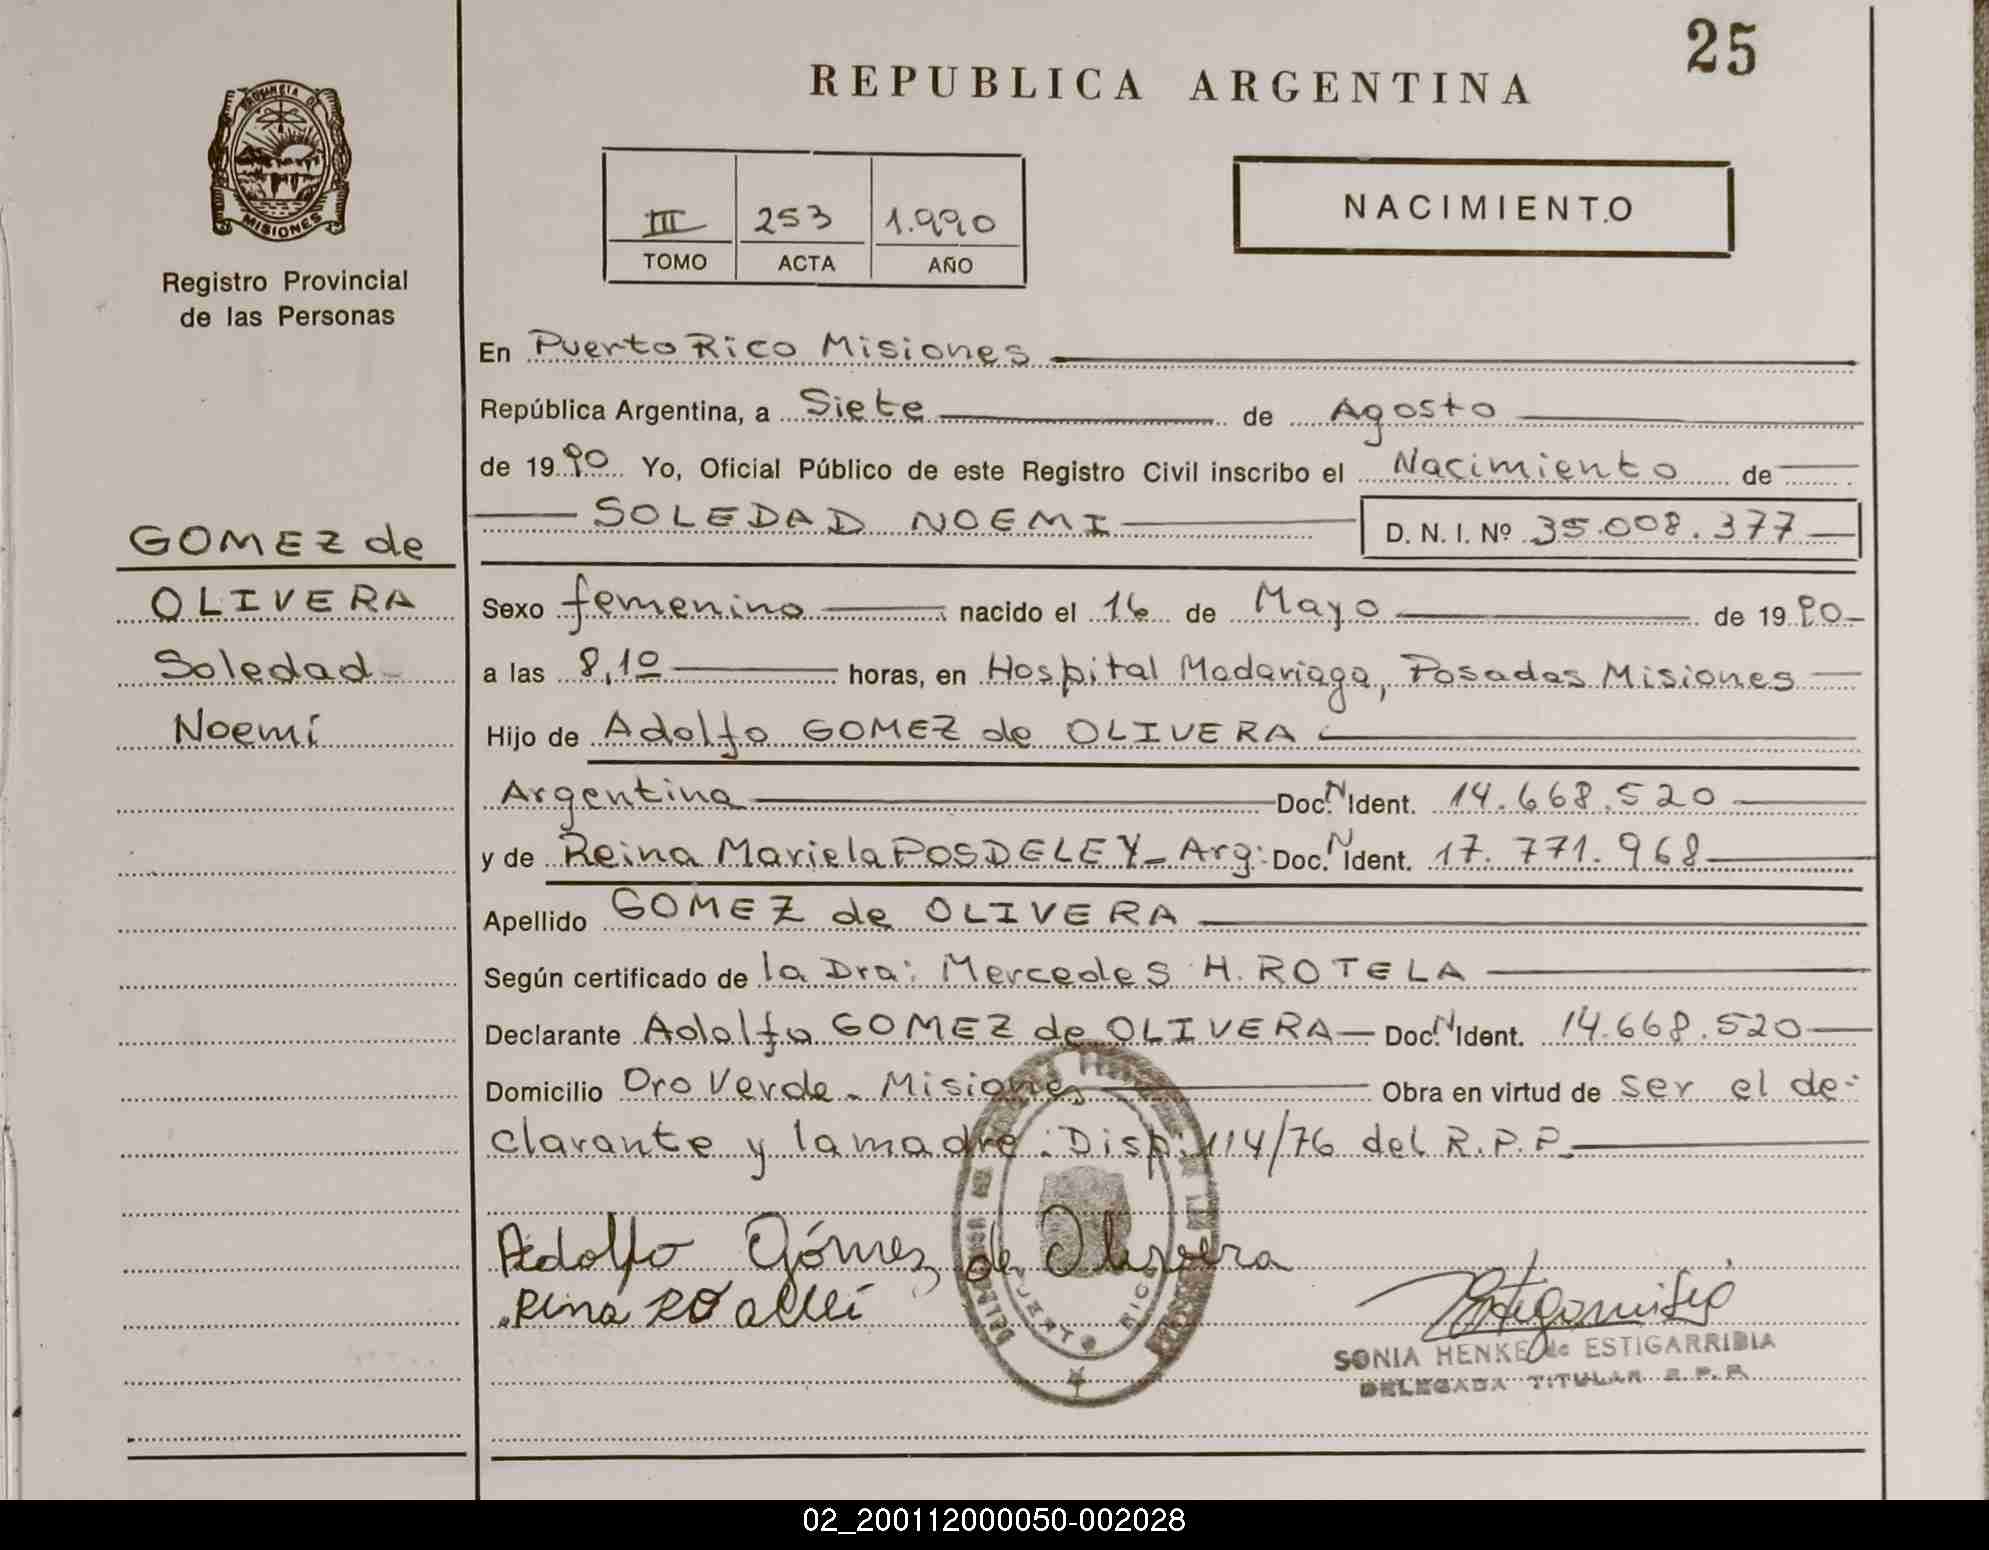 25
REPUBLICA ARGENTINA
PROVINCIA DE
MISIONES
Registro Provincial
de las Personas
III 253 1.990
TOMO ACTA AÑO
NACIMIENTO
En Puerto Rico Misiones
República Argentina, a Siete de Agosto
de 1990 Yo, Oficial Público de este Registro Civil inscribo el Nacimiento de
SOLEDAD NOEMI D. N. I. Nº 35.008.377
GOMEZ de
OLIVERA
Soledad
Noemí
Sexo femenino nacido el 16 de Mayo de 1990
a las 8,10 horas, en Hospital Madariaga, Posadas Misiones
Hijo de Adolfo GOMEZ de OLIVERA
Argentina Doc. N Ident. 14.668.520
y de Reina Mariela POSDELEY - Arg: Doc. N Ident. 17.771.968
Apellido GOMEZ de OLIVERA
Según certificado de la Dra: Mercedes H. ROTELA
Declarante Adolfo GOMEZ de OLIVERA Doc. N Ident. 14.668.520
Domicilio Oro Verde - Misiones Obra en virtud de ser el de-
clarante y la madre. Disp: 114/76 del R.P.P.
Adolfo Gómez de Olivera
PUERTO RICO
SONIA HENKE de ESTIGARRIBIA
DELEGADA TITULAR R. P. P.
02_200112000050-002028